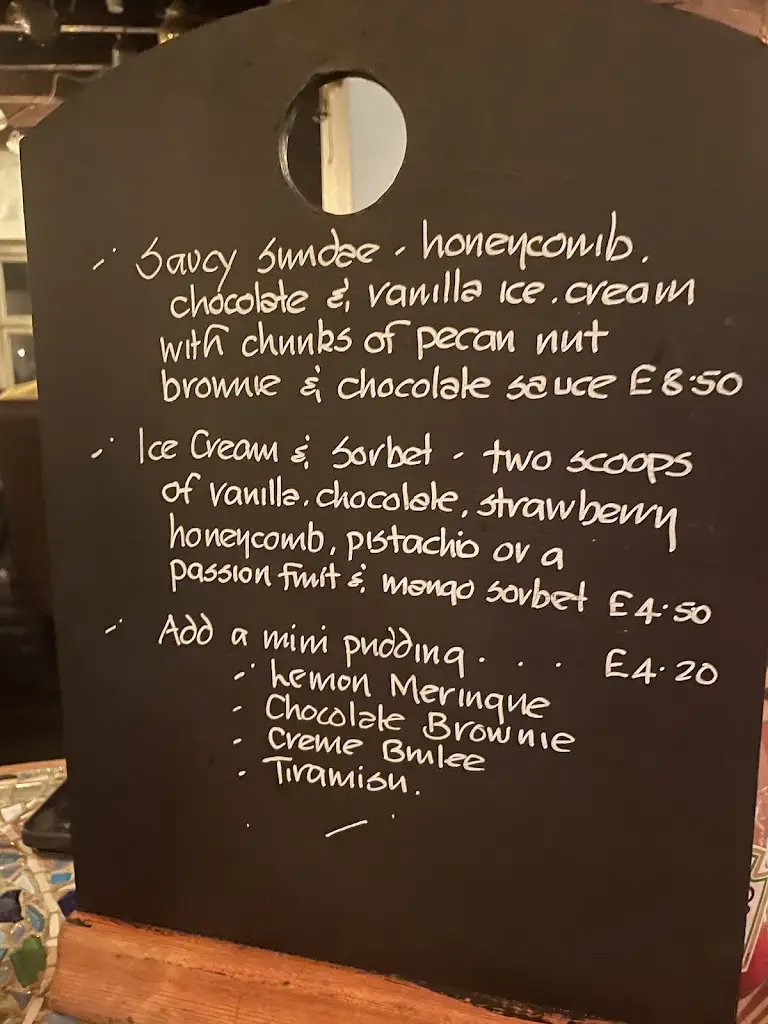 Saucy Sundae - honeycomb.
chocolate & vanilla ice.cream
with chunks of pecan nut
brownie & chocolate sauce £8.50
Ice Cream & Sorbet - two scoops
of vanilla. chocolate, strawberry
honeycomb, pistachio or a
passion fruit & mango sorbet £4.50
Add a mini pudding . . . . £4.20
- Lemon Meringue
- Chocolate Brownie
- Creme Brulee
- Tiramisu.